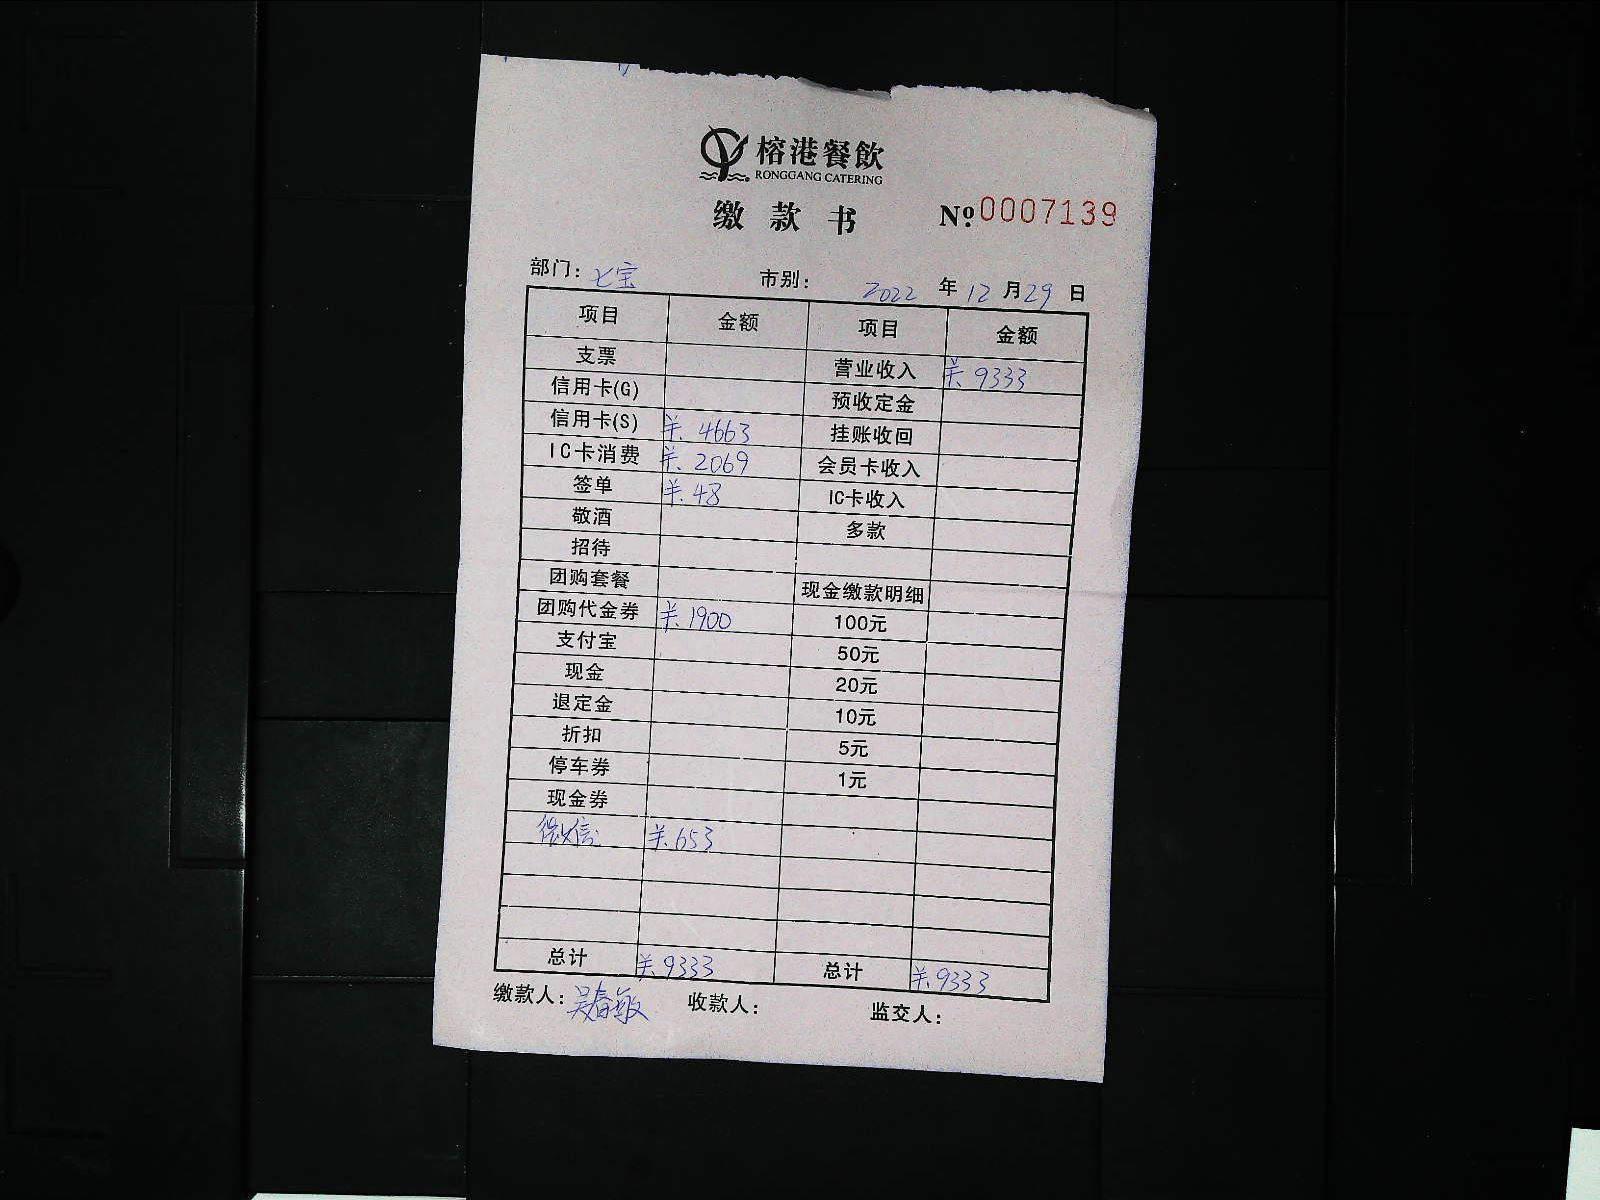 榕港餐飲
RONGGANG CATERING
缴款书 Nº.0007139
部门：七宝 市别： 2022 年 12 月 29 日
项目 金额 项目 金额
支票 营业收入 ¥.9333
信用卡(G) 预收定金
信用卡(S) ¥.4663 挂账收回
IC卡消费 ¥.2069 会员卡收入
签单 ¥.48 IC卡收入
敬酒 多款
招待
团购套餐 现金缴款明细
团购代金券 ¥.1900 100元
支付宝 50元
现金 20元
退定金 10元
折扣 5元
停车券 1元
现金券
微信 ¥.653
总计 ¥.9333 总计 ¥.9333
缴款人：吴春敏 收款人： 监交人：